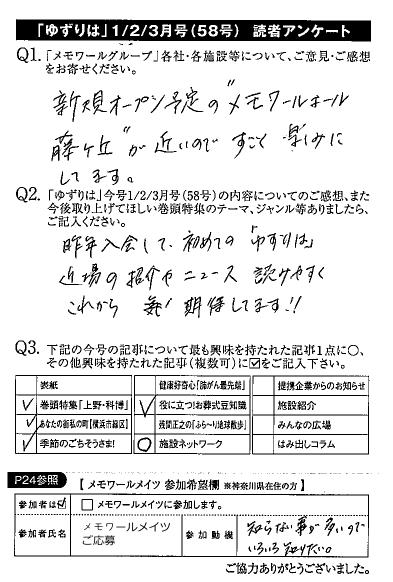 「ゆずりは」1/2/3月号(58号) 読者アンケート
Q1.「メモワールグループ」各社・各施設等について、ご意見・ご感想
をお寄せください。
新規オープン予定の"メモワールホール
藤ヶ丘"が近いので すごく 楽しみに
してます。
Q2.「ゆずりは」今号1/2/3月号(58号)の内容についてのご感想、また
今後取り上げてほしい巻頭特集のテーマ、ジャンル等ありましたら、
ご記入ください。
昨年入会して、初めての「ゆずりは」
近場の紹介やニュース 読みやすく
これから 期待してます!!
Q3. 下記の今号の記事について最も興味を持たれた記事1点に○、
その他興味を持たれた記事(複数可)に☑をご記入下さい。
表紙 健康好奇心「肺がん最先端」 提携企業からのお知らせ
✓ 巻頭特集「上野・科博」 ✓ 役に立つ!お葬式豆知識 施設紹介
✓ あなたの街私の町【横浜市緑区】 残間正之の「ふら〜り地球散歩」 みんなの広場
✓ 季節のごちそうさま! ○ 施設ネットワーク はみ出しコラム
P24参照 【 メモワールメイツ 参加希望欄 ※神奈川県在住の方 】
参加者は☑ □ メモワールメイツに参加します。
参加者氏名 メモワールメイツ
ご応募
参加動機 知らない事が多いので
いろいろ知りたい。
ご協力ありがとうございました。